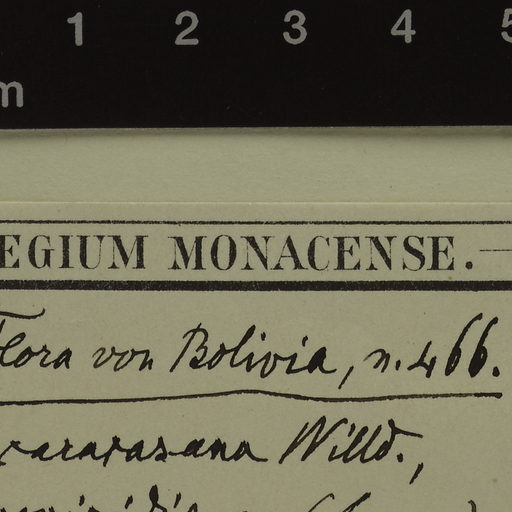 1 2 3 4 5
m
EGIUM MONACENSE.
Flora von Bolivia, n. 466.
Willd.,